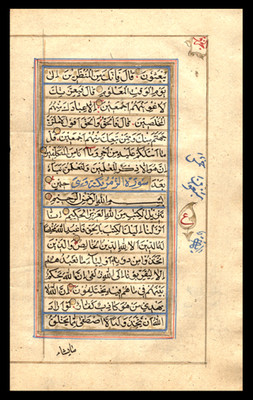 يبعثون قال فانك من المنظرين الى
يوم الوقت المعلوم قال فبعزتك
لاغوينهم اجمعين الا عبادك منهم
المخلصين قال فالحق والحق اقول لاملئن
جهنم منك وممن تبعك منهم اجمعين قل
ما اسئلكم عليه من اجر وما انا من المتكلفين
ان هو الا ذكر للعلمين ولتعلمن نباه
بعد حين سورة الزمر مكية
بسم الله الرحمن الرحيم
تنزيل الكتب من الله العزيز الحكيم انا
انزلنا اليك الكتب بالحق فاعبد الله مخلصا
له الدين الا لله الدين الخالص والذين
اتخذوا من دونه اولياء ما نعبدهم
الا ليقربونا الى الله زلفى ان الله يحكم
بينهم في ما هم فيه يختلفون ان الله لا
يهدي من هو كاذب كفار لو اراد
الله ان يتخذ ولدا لاصطفى مما يخلق
ما يشاء